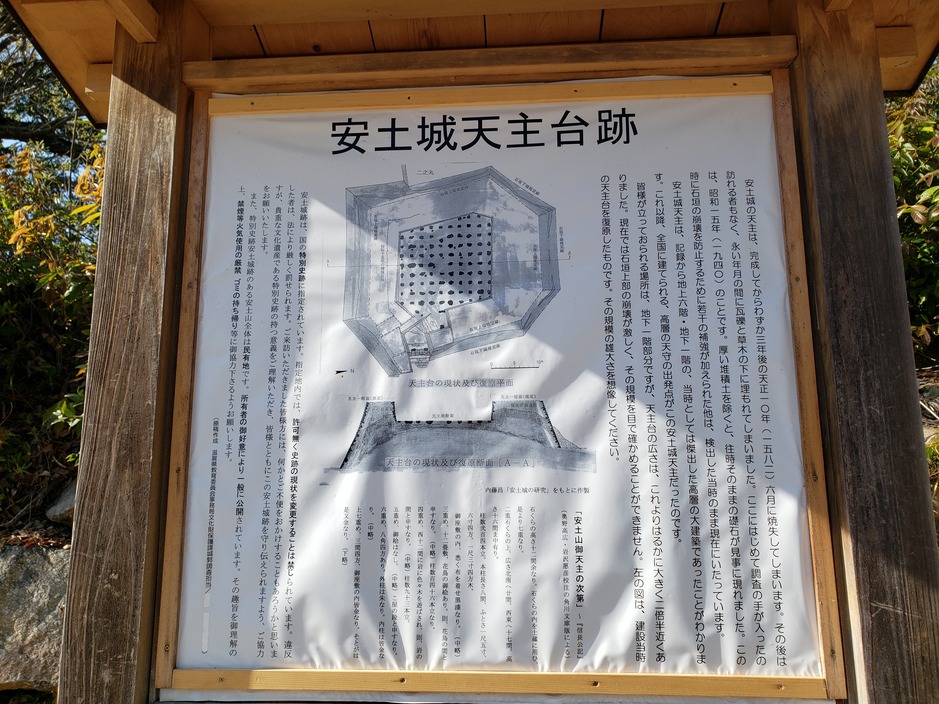 安土城天主台跡
安土城の天主は、完成してからわずか三年後の天正一〇年(一五八二)六月に焼失してしまいます。その後は
訪れる者もなく、永い年月の間に瓦礫と草木の下に埋もれてしまいました。ここにはじめて調査の手が入ったの
は、昭和一五年(一九四〇)のことです。厚い堆積土を除くと、往時そのままの礎石が見事に現れました。この
時に石垣の崩壊を防止するために若干の補強が加えられた他は、検出した当時のまま現在にいたっています。
安土城天主は、記録から地上六階・地下一階の、当時としては傑出した高層の大建築であったことがわかりま
す。これ以降、全国に建てられる、高層の天守の出発点がこの安土城天主だったのです。
皆様が立っておられる場所は、地下一階部分ですが、天主台の広さは、これよりはるかに大きく二倍半近くあ
りました。現在では石垣上部の崩壊が激しく、その規模を目で確かめることができません。左の図は、建設当時
の天主台を復原したものです。その規模の雄大さを想像してください。
二之丸
N
天主台の現状及び復原平面
天主台の現状及び復原断面［A－A］
内藤昌「安土城の研究」をもとに作製
「安土山御天主の次第」 ～『信長公記』
(奥野高広・岩沢愿彦校注の角川文庫版による)
石くらの高さ十二間余なり。石くらの内を土蔵に用ひ、
是より七重なり。
二重石くらの上、広さ北南へ廿間、西東へ十七間、高
さ十六間ま中有り。
柱数二百四本立。本柱長さ八間、ふとさ一尺五寸、
六寸四方、一尺三寸四方木。
御座敷の内、悉く布を着せ黒漆なり。(中略)
三重め、十二畳敷、花鳥の御絵あり。則、花鳥の間と
申すなり。(中略)柱数百四十六本立なり。
四重め、西十二間に岩に色々木を遊ばされ、則、岩の
間と申すなり。(中略)柱数九十三本立。
五重め、御絵はなし。(中略)こ屋の段と申すなり。
六重め、八角四間あり。外柱は朱なり。内柱は皆金な
り。(中略)
上七重め、三間四方、御座敷の内皆金なり。そとがは
是又金なり。(下略)
安土城跡は、国の特別史跡に指定されています。指定地内では、許可無く史跡の現状を変更することは禁じられています。違反
した者は、法により厳しく罰せられます。ご来訪いただきました皆様方には、何かとご不便をおかけすることもあろうかと思いま
すが、貴重な文化遺産である特別史跡の持つ意義をご理解いただき、皆様とともにこの安土城跡を守り伝えられますよう、ご協力
をお願いいたします。
また、特別史跡安土城跡のある安土山全体は民有地です。所有者の御好意により一般に公開されています。その趣旨を御理解の
上、禁煙等火気使用の厳禁、ゴミの持ち帰り等に御協力下さるようお願いします。
(原稿作成 滋賀県教育委員会事務局文化財保護課城郭調査担当)